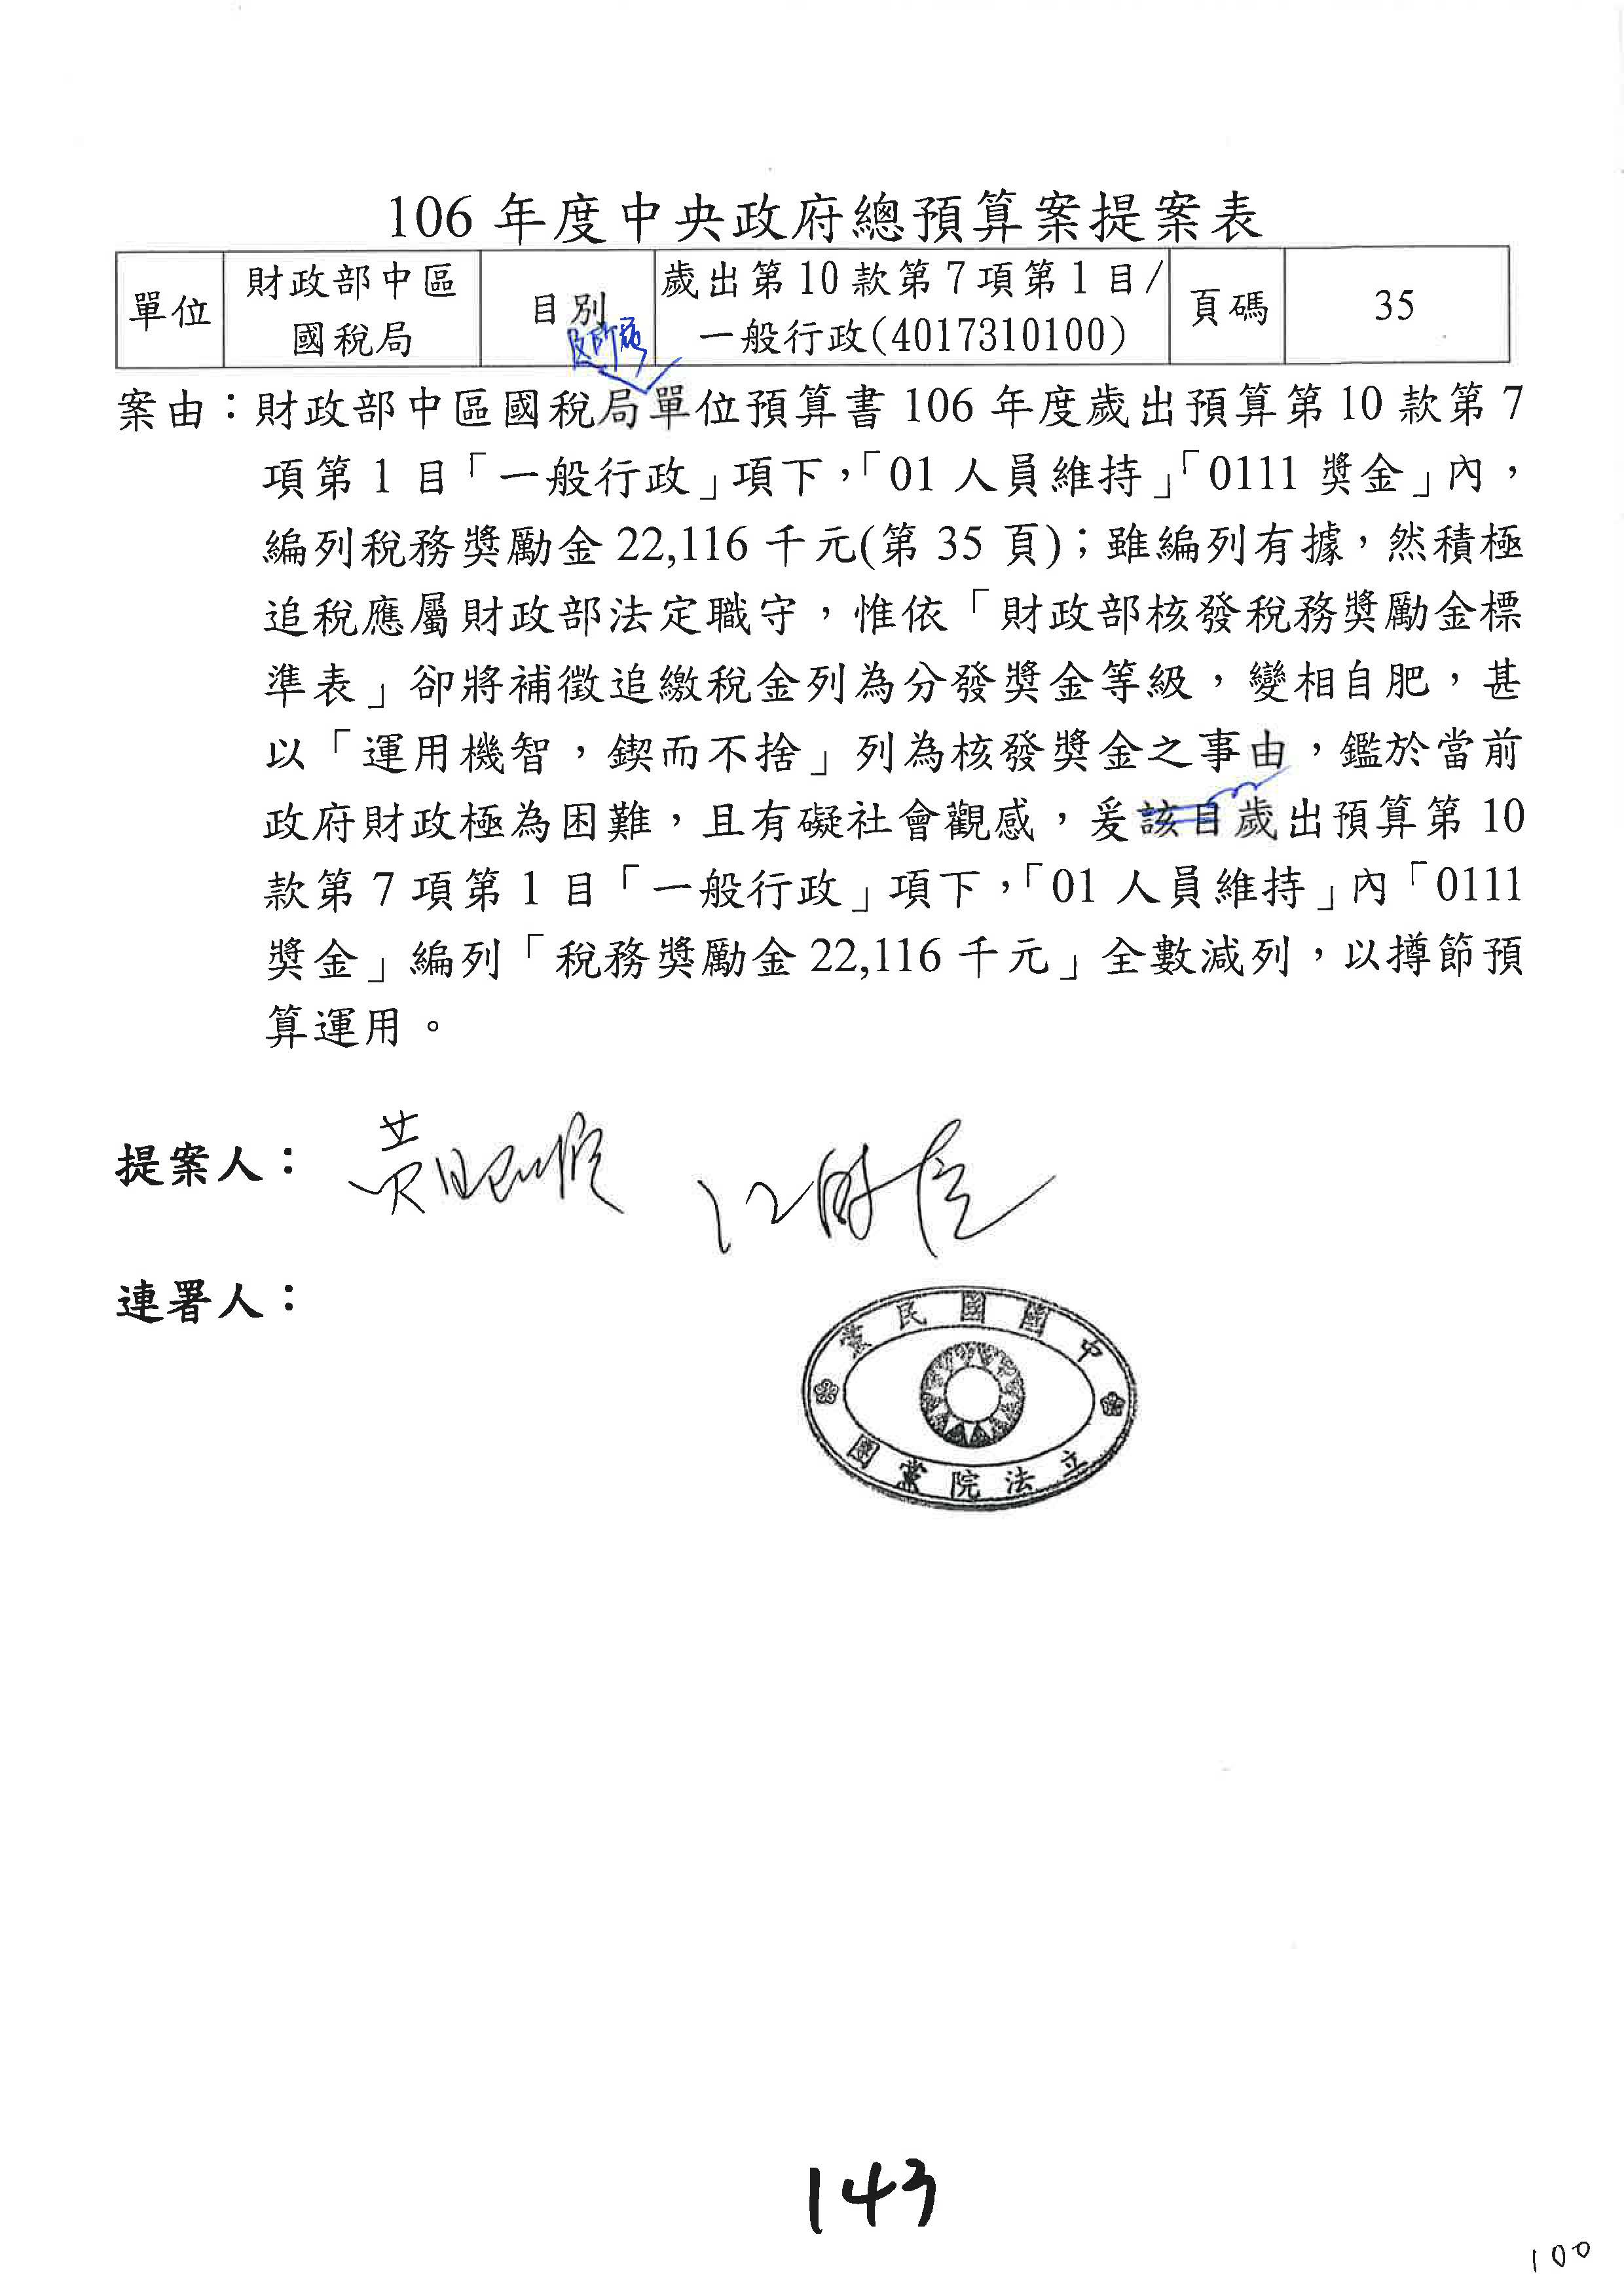 106 年度中央政府總預算案提案表
單位
財政部中區
國稅局
目別
歲出第 10 款第 7 項第 1 目/
一般行政(4017310100)
頁碼
35
及所屬
案由：財政部中區國稅局單位預算書 106 年度歲出預算第 10 款第 7
項第 1 目「一般行政」項下，「01 人員維持」「0111 獎金」內，
編列稅務獎勵金 22,116 千元(第 35 頁)；雖編列有據，然積極
追稅應屬財政部法定職守，惟依「財政部核發稅務獎勵金標
準表」卻將補徵追繳稅金列為分發獎金等級，變相自肥，甚
以「運用機智，鍥而不捨」列為核發獎金之事由，鑑於當前
政府財政極為困難，且有礙社會觀感，爰該目歲出預算第 10
款第 7 項第 1 目「一般行政」項下，「01 人員維持」內「0111
獎金」編列「稅務獎勵金 22,116 千元」全數減列，以撙節預
算運用。
提案人： 黃昭順
連署人：
中國國民黨
立法院黨團
143
100